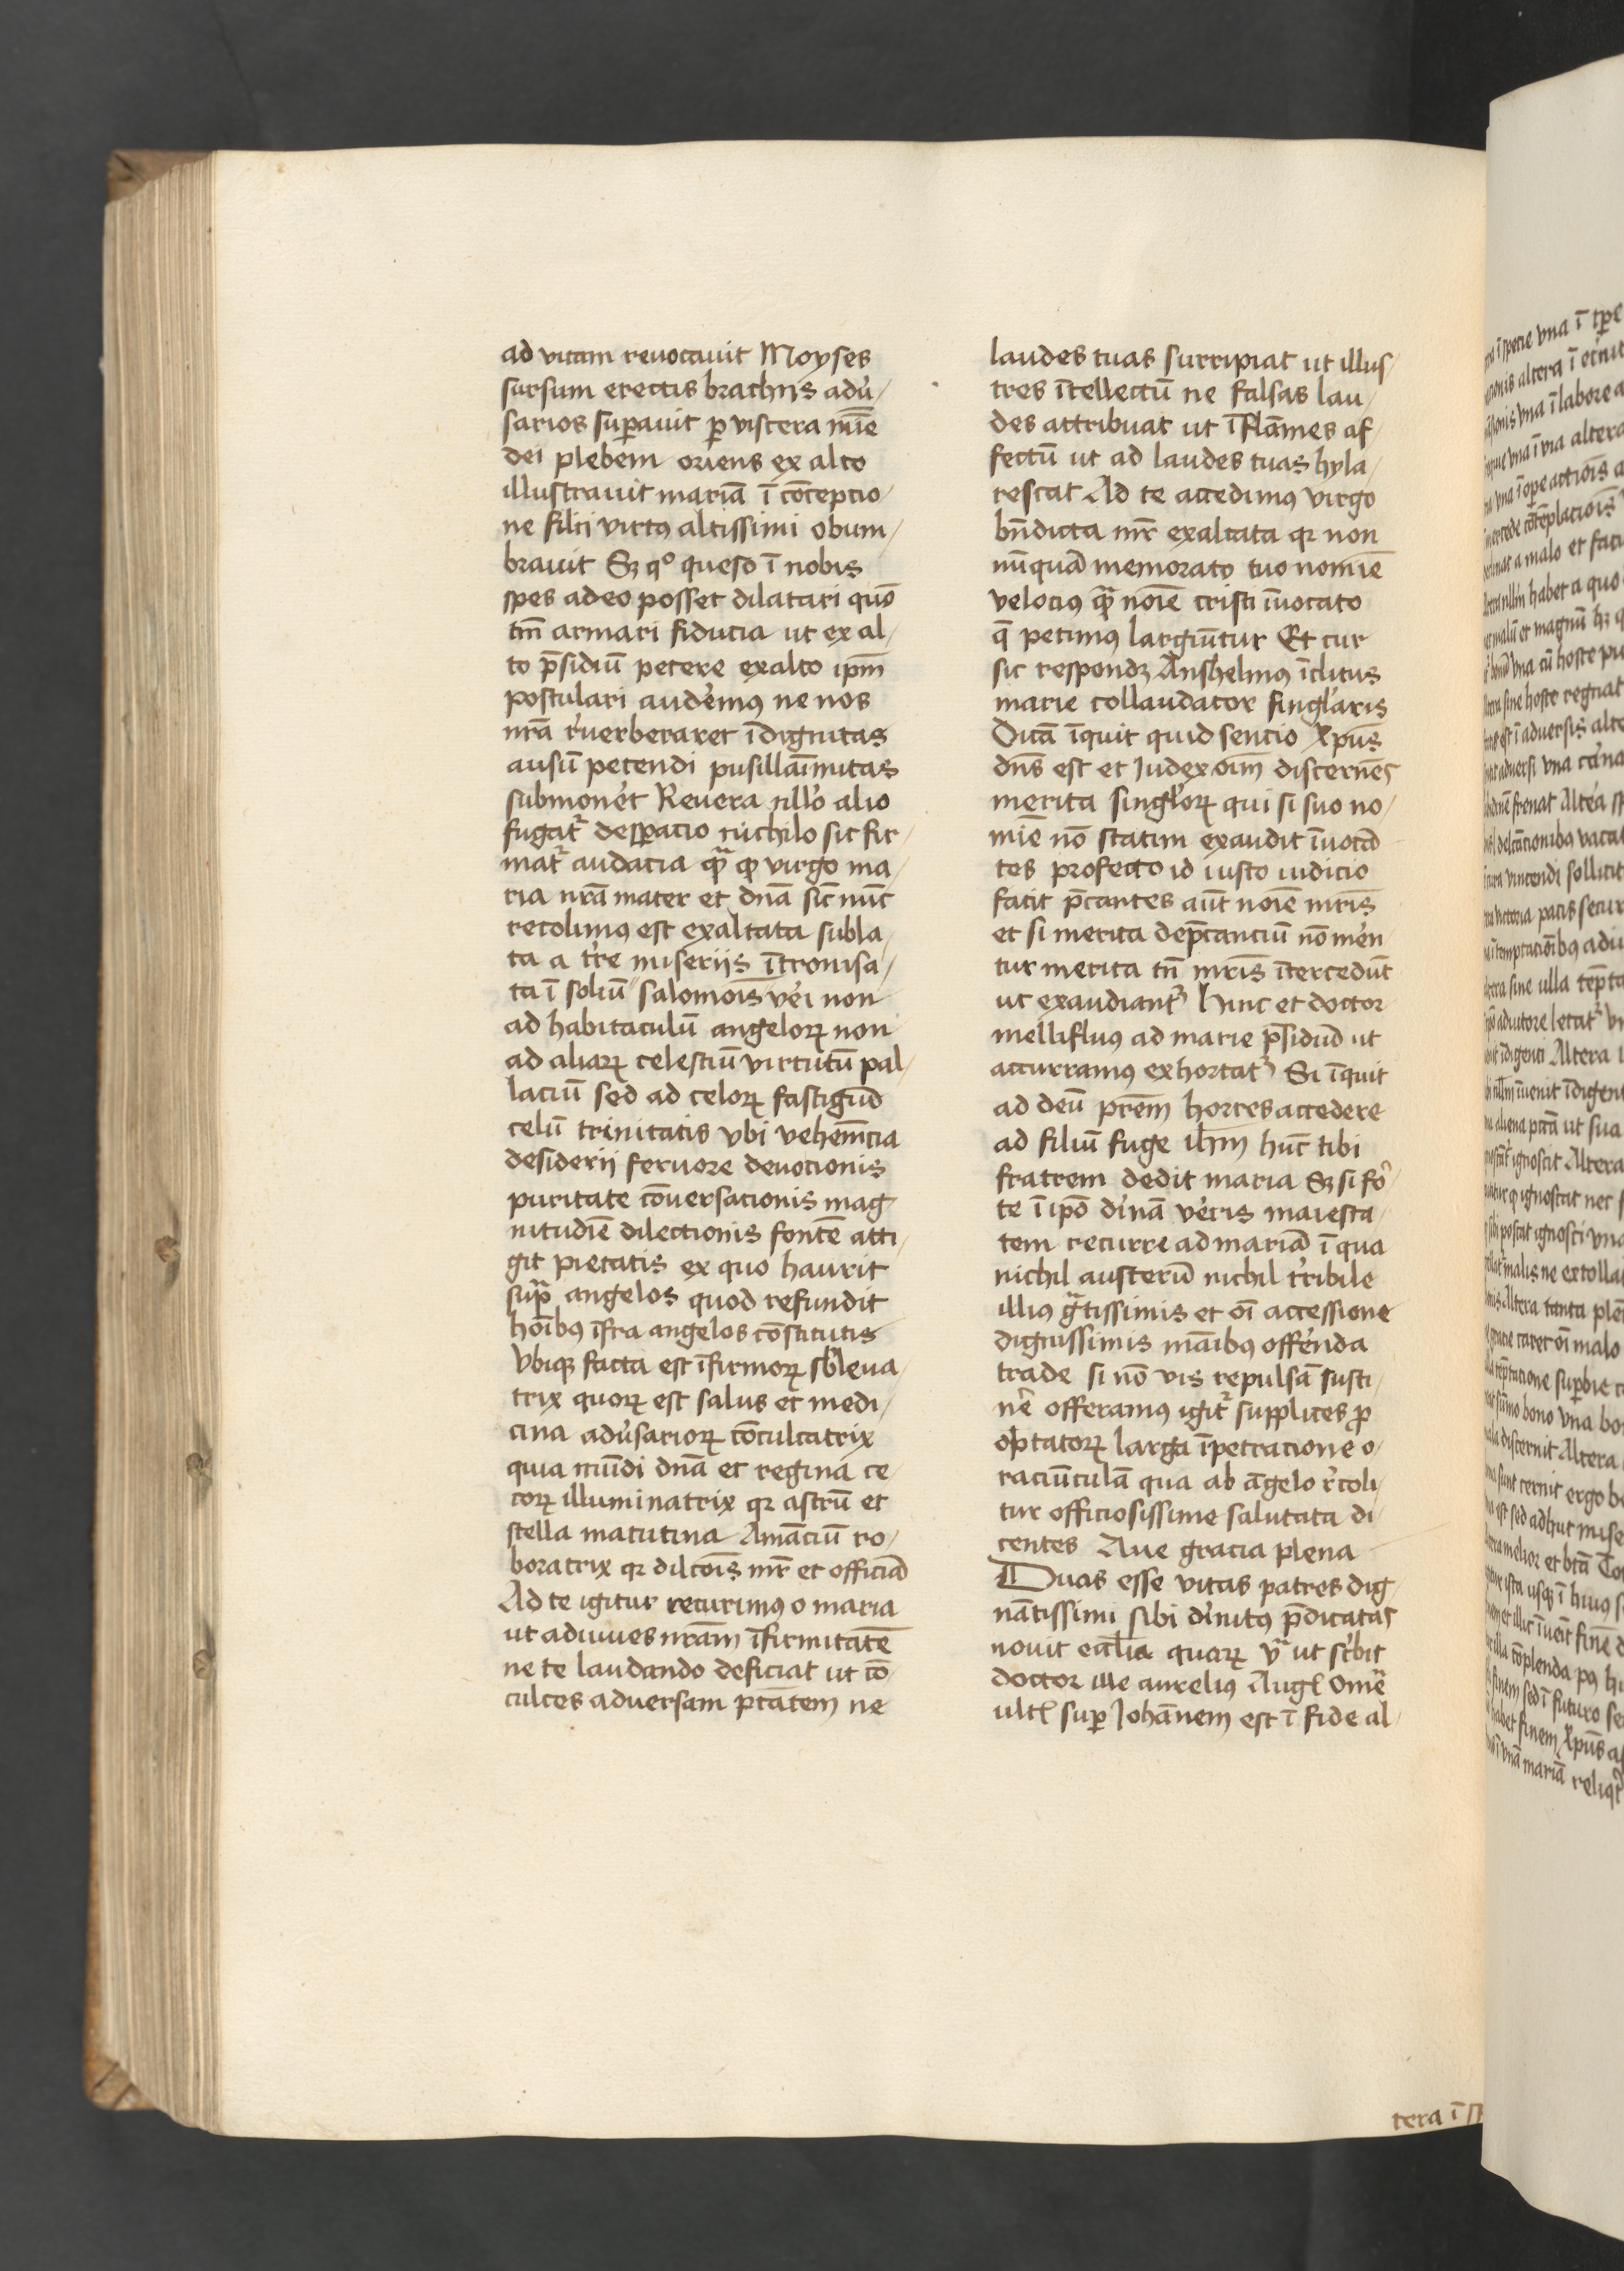 ad vitam reuocauit Moyses
sursum erectis brachijs adu̓-
sarios suꝑauit ꝑ viscera mīe
dei plebem oriens ex alto
illustrauit mariā ī cōcepcio-
ne filii virtꝰ altissimi obum-
brauit Sꝫ qͦ queso ī nobis
spes adeo posset dilatari quō
tm̄ armari fiducia ut ex al-
to p̄sidiū petere exalto ip̄m
postulari audem̓ꝰ ne nos
nrā r̓uerberaret īdignitas
ausū petendi pusillaīmitas
submonet̓ Reuera nllo̓ alio
fugat᷑ desꝑacio nichilo sic fir-
mat᷑ audacia qᷓ ꝙ virgo ma-
ria nrā mater et dn̄a sic̄ nūc
recolimꝰ est exaltata subla-
ta a tr̓re miseriis ītronisa-
ta ī soliū salomoīs ve̓i non
ad habitaculū angeloꝝ non
ad aliaꝝ celestiū virtutū pal-
laciū sed ad celoꝝ fastigiū
celū trinitatis vbi vehem̄cia
desiderij feruore deuocionis
puritate cōuersacionis mag-
nitudīe dilectionis fontē atti-
git pietatis ex quo haurit
sup̄ angelos quod refundit
hoībꝰ īfra angelos cōstitutis
Vbiqꝫ facta est īfirmoꝝ sb̓leua-
trix quoꝝ est salus et medi-
cina adu̓sarioꝝ cōculcatrix
quia mūdi dn̄a et regina ce-
coꝝ illuminatrix qꝛ astrū et
stella matutina Amāciū ro-
boratrix qꝛ dilcōis mr̄ et officiā
Ad te igitur recurimꝰ o maria
ut adiuues nrām īfirmitatē
ne te laudando deficiat ut cō-
culces adversam ptātem ne
laudes tuas surripiat ut illus-
tres ītellectū ne falsas lau-
des attribuat ut īflāmes af-
fectū ut ad laudes tuas hyla-
rescat Ad te accedimꝰ virgo
bn̄dicta mr̄ exaltata qꝛ non
nūquā memorato tuo nomīe
velociꝰ qᷓ noīe cristi īuocato
q̄ petimꝰ largiūtur Et cur
sic respondꝫ Anshelmꝰ īclitus
marie collaudator singl̓aris
Dicā īquit quid sencio xp̄us
dn̄s est et Iudex oīm discernēs
merita singl̓oꝝ qui si suo no-
mīe nō statim exaudit īuocā
tes profecto id iusto iudicio
facit p̄cantes aūt noīe mr̄is
et si merita dep̄canciū nō mer̓en
tur merita tn̄ mr̄is ītercedūt
ut exaudiant᷑ Hinc et doctor
mellifluꝰ ad marie p̄sidiū ut
accurramꝰ exhortat᷑ Si īquit
ad deū p̄rem horres accedere
ad filiū fuge ih̄m hūc tibi
fratrem dedit maria Sꝫ si fo̓-
te ī ip̄o di̓nā ve̓ris maiesta-
tem recurre ad mariā ī qua
nichil austerū nichil tr̓ribile
illiꝰ gᷓtissimis et oī accessione
dignissimis māibus offe̓nda
trade si nō vis repulsā susti-
ne̓ offeramꝰ igit᷑ supplices ꝓ
optatoꝝ larga īpetracione o-
raciūculā qua ab āgelo r̓coli-
tur officiosissime salutata di-
centes Aue gracia plena
Duas esse vitas patres dig-
nātissimi sibi di̓nitꝰ p̄dicatas
nouit eccl̄ia quaꝝ vᷓ ut scr̓bit
doctor ille aurelius Augꝉ Ome᷑
ultꝉ suꝑ Iohānem est ī fide al-
tera ī